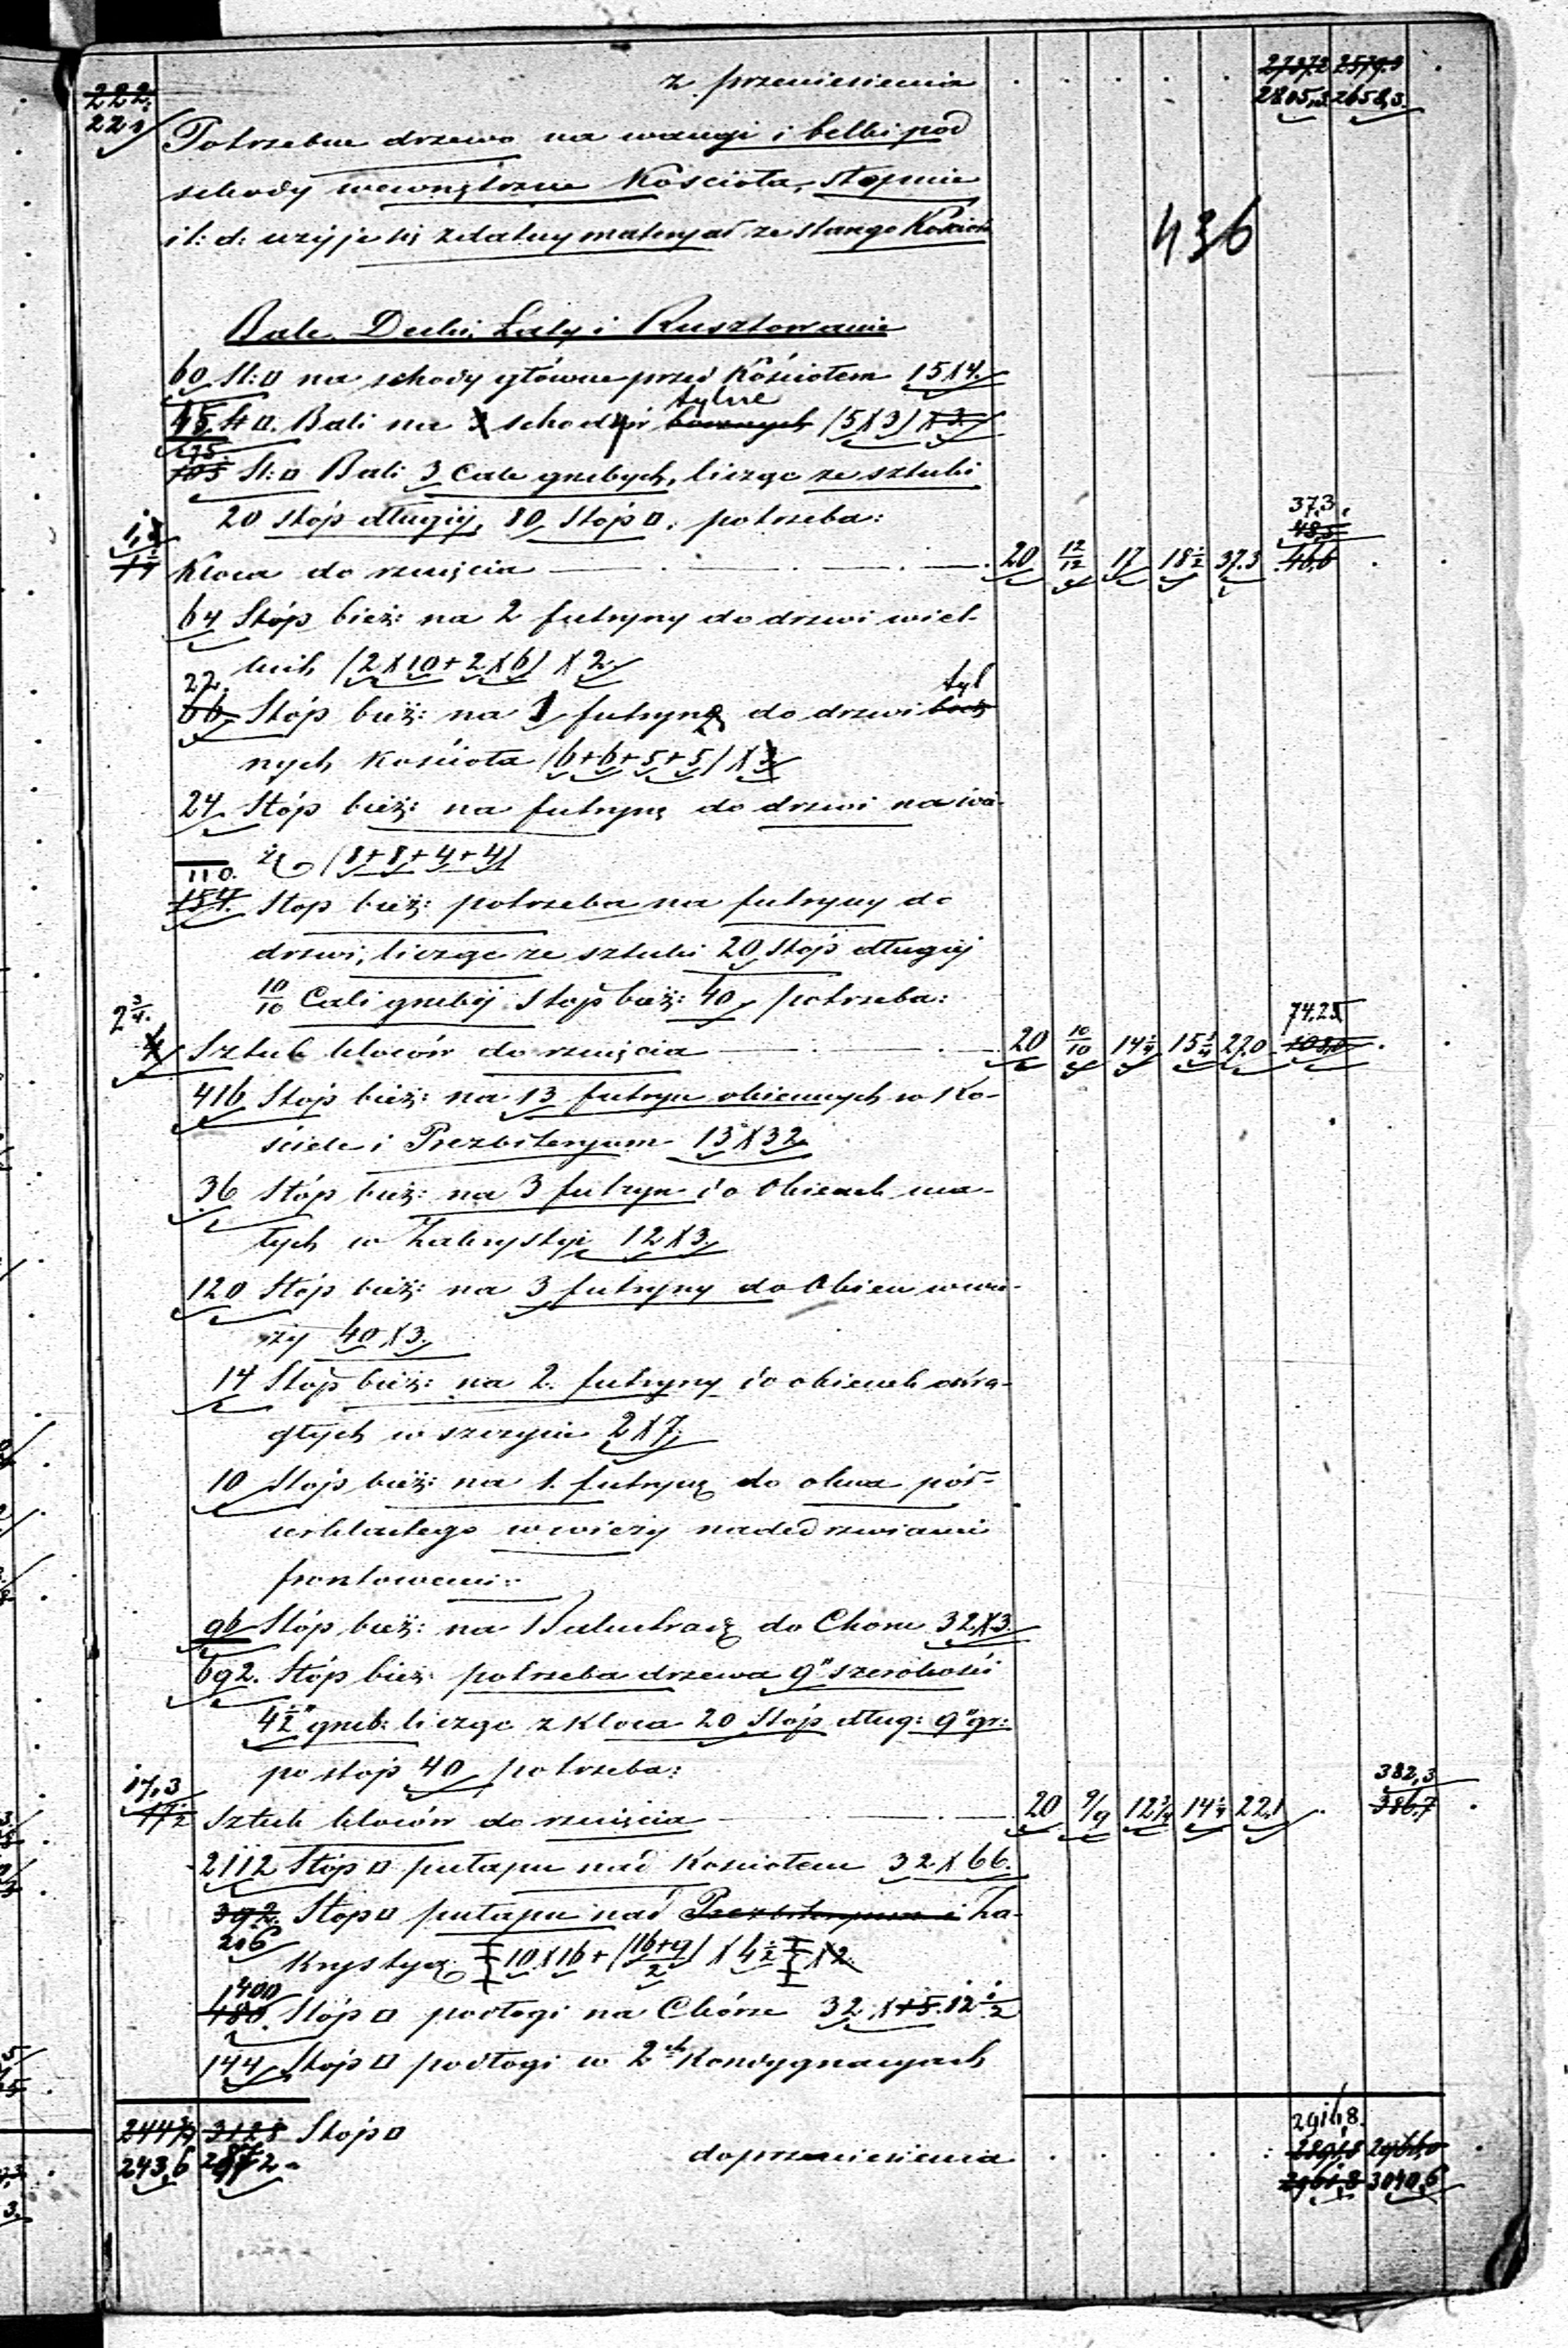 z przeniesienia 2737.2 2579.9
222. 2805,3 2658,3.
221 Potrzebne drzewo na wangi i belki pod
schody wewnętrzne Kościoła, stopnie
i t: d: użyje się zdatny materyał ze starego Kościoła
436
Bale, Deski, Łaty i Rusztowanie
60 St: □ na schody główne przed Kościołem 15X4.
tylne
45 St □. Bali na 3 schodów bocznych (5X3) X 3.
75.
105 St: □ Bali 3 Cale grubych, licząc ze sztuki
20 stóp długiéj, 80 Stóp □, potrzeba:
37,3.
48,5
Kloca do rznięcia 20 12/12 17 18½ 37.3 46,6
64 Stóp bież: na 2 futryny do drzwi wiel-
kich (2X10+2X6) X 2.
22. tyl
66 Stóp bież: na 1 futrynę do drzwi bocz
nych Kościoła (6+6+5+5) X 3
24 Stóp bież: na futrynę do drzwi na wie-
żę (8+8+4+4)
110.
154. Stop bież: potrzeba na futryny do
drzwi, licząc ze sztuki 20 Stóp długiéj
10/10 Cali grubéj Stop bież: 40, potrzeba:
2¾. 74.25
4 Sztuk kloców do rznięcia 20 10/10 14¼ 15¼ 27.0 108,0
416 Stóp bież: na 13 futryn okiennych w Ko-
ściele i Prezbiteryum 13X32
36 Stóp bież: na 3 futryn do Okienek ma-
łych w Zakrystyi 12X3.
120 Stóp bież: na 3 futryny do Okien w wie-
ży 40X3.
14 Stóp bież: na 2. futryny do okienek okrą-
głych w szczycie 2X7.
10 Stóp bież: na 1. futrynę do okna pół-
cyrklastego w wieży nade drzwiami
frontowemi:
96 Stóp bież: na Balustradę do Choru 32X3.
692. Stóp bież: potrzeba drzewa 9" szerokości
4½" grub: licząc z Kloca 20 Stóp dług: 9" gr:
po stóp 40, potrzeba:
17,3 382,3
17½ Sztuk kloców do rznięcia 20 9/9 12¾ 14¼ 22,1 386,7
2112 Stóp □ pułapu nad Kościołem 32X66.
392. Stop □ pułapu nad Prezbiteryum i Za-
216 Krystyą [10X16+(16+9/2)X4½] X2.
400
480. Stóp □ podłogi na Chórze 32X15. 12½
144 Stóp □ podłogi w 2ch Kondygnacyach
2916,8.
244¾ 3128 Stóp □ 2891,8 2966,0
243,6 2872 do przeniesienia 2961,8 3040,6